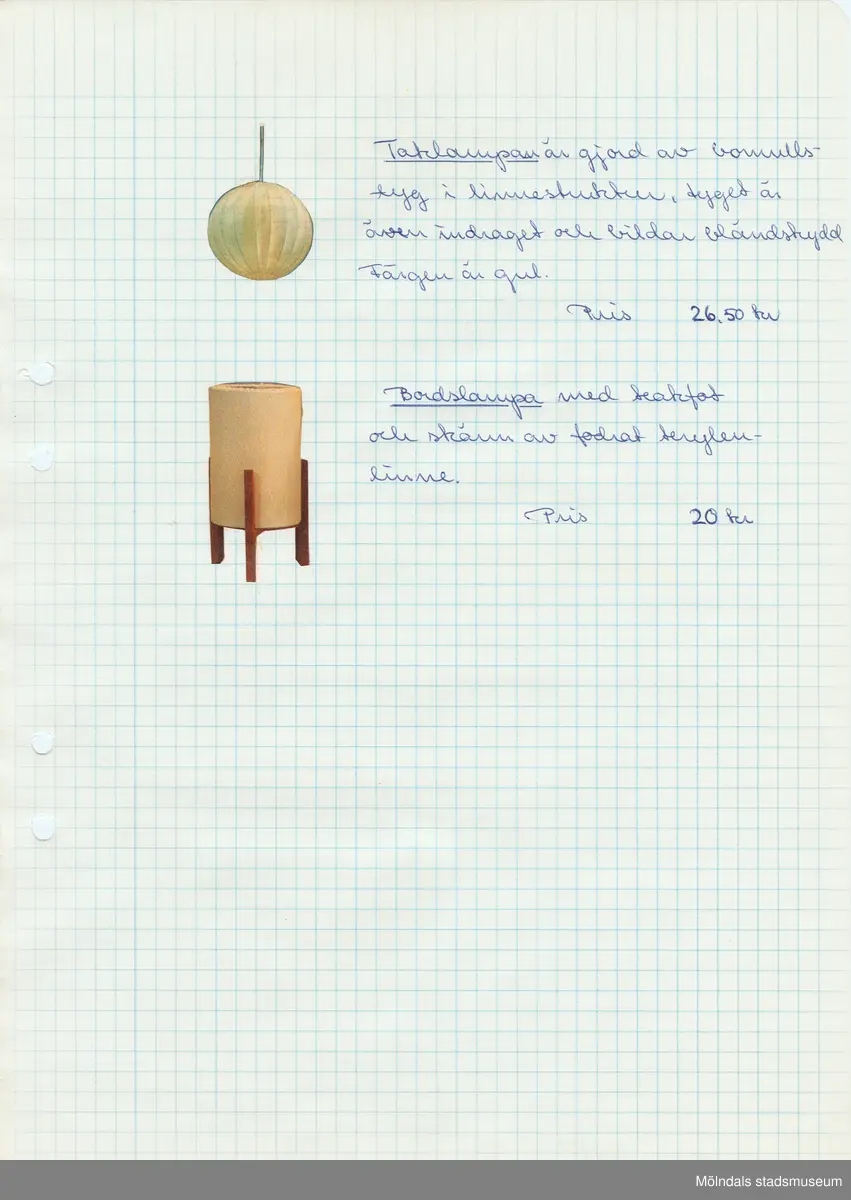 Taklampan är gjord av bomulls-
tyg i linnestruktur, tyget är
även indraget och bildar bländskydd
Färgen är gul.
Pris 26.50 kr
Bordslampa med teakfot
och skärm av fodrat terylen-
linne.
Pris 20 kr
Mölndals stadsmuseum